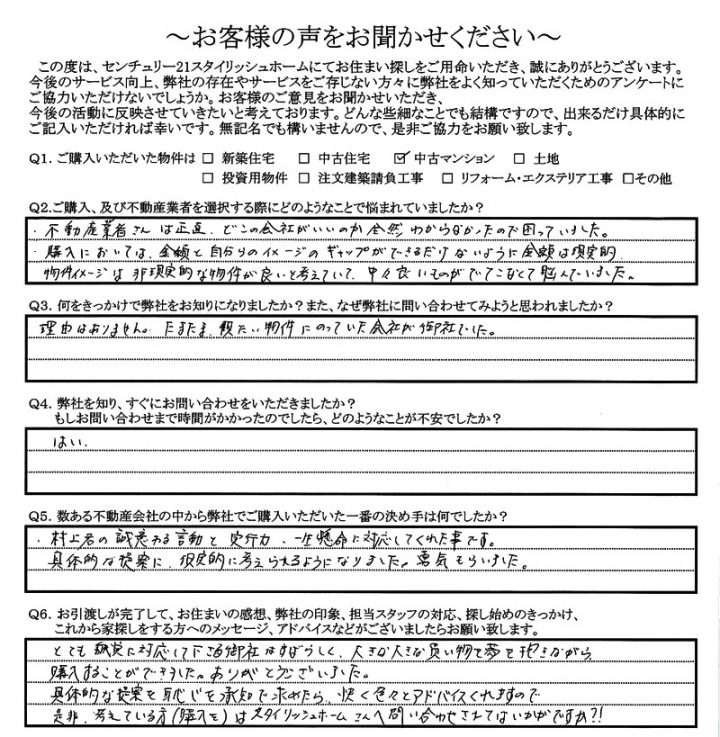 ～お客様の声をお聞かせください～
この度は、センチュリー21スタイリッシュホームにてお住まい探しをご用命いただき、誠にありがとうございます。
今後のサービス向上、弊社の存在やサービスをご存じない方々に弊社をよく知っていただくためのアンケートに
ご協力いただけないでしょうか。お客様のご意見をお聞かせいただき、
今後の活動に反映させていきたいと考えております。どんな些細なことでも結構ですので、出来るだけ具体的に
ご記入いただければ幸いです。無記名でも構いませんので、是非ご協力をお願い致します。
Q1. ご購入いただいた物件は □ 新築住宅 □ 中古住宅 ☑ 中古マンション □ 土地
□ 投資用物件 □ 注文建築請負工事 □ リフォーム・エクステリア工事 □その他
Q2.ご購入、及び不動産業者を選択する際にどのようなことで悩まれていましたか？
・不動産業者さんは正直、どこの会社がいいのか全然わからなかったので困っていました。
・購入においては、金額と自分らのイメージのギャップができるだけないように金額は現実的
物件イメージは非現実的な物件が良いと考えていて、中々良いものがでてこなくて悩んでいました。
Q3. 何をきっかけで弊社をお知りになりましたか？また、なぜ弊社に問い合わせてみようと思われましたか？
理由はありません。たまたま、観たい物件にのっていた会社が御社でした。
Q4. 弊社を知り、すぐにお問い合わせをいただきましたか？
もしお問い合わせまで時間がかかったのでしたら、どのようなことが不安でしたか？
はい。
Q5. 数ある不動産会社の中から弊社でご購入いただいた一番の決め手は何でしたか？
・村上君の誠意ある言動と実行力、一生懸命に対応してくれた事です。
具体的な提案に、現実的に考えられるようになりました。勇気もらいました。
Q6. お引渡しが完了して、お住まいの感想、弊社の印象、担当スタッフの対応、探し始めのきっかけ、
これから家探しをする方へのメッセージ、アドバイスなどがございましたらお願い致します。
とても誠実に対応して下さる御社はすばらしく、大きな大きな買い物を夢を抱きながら
購入することができました。ありがとうございました。
具体的な提案を 承知で求めたら、快く色々とアドバイスくれますので
是非、考えている方(購入を)はスタイリッシュホームさんへ問い合わせされてはいかがですか?!